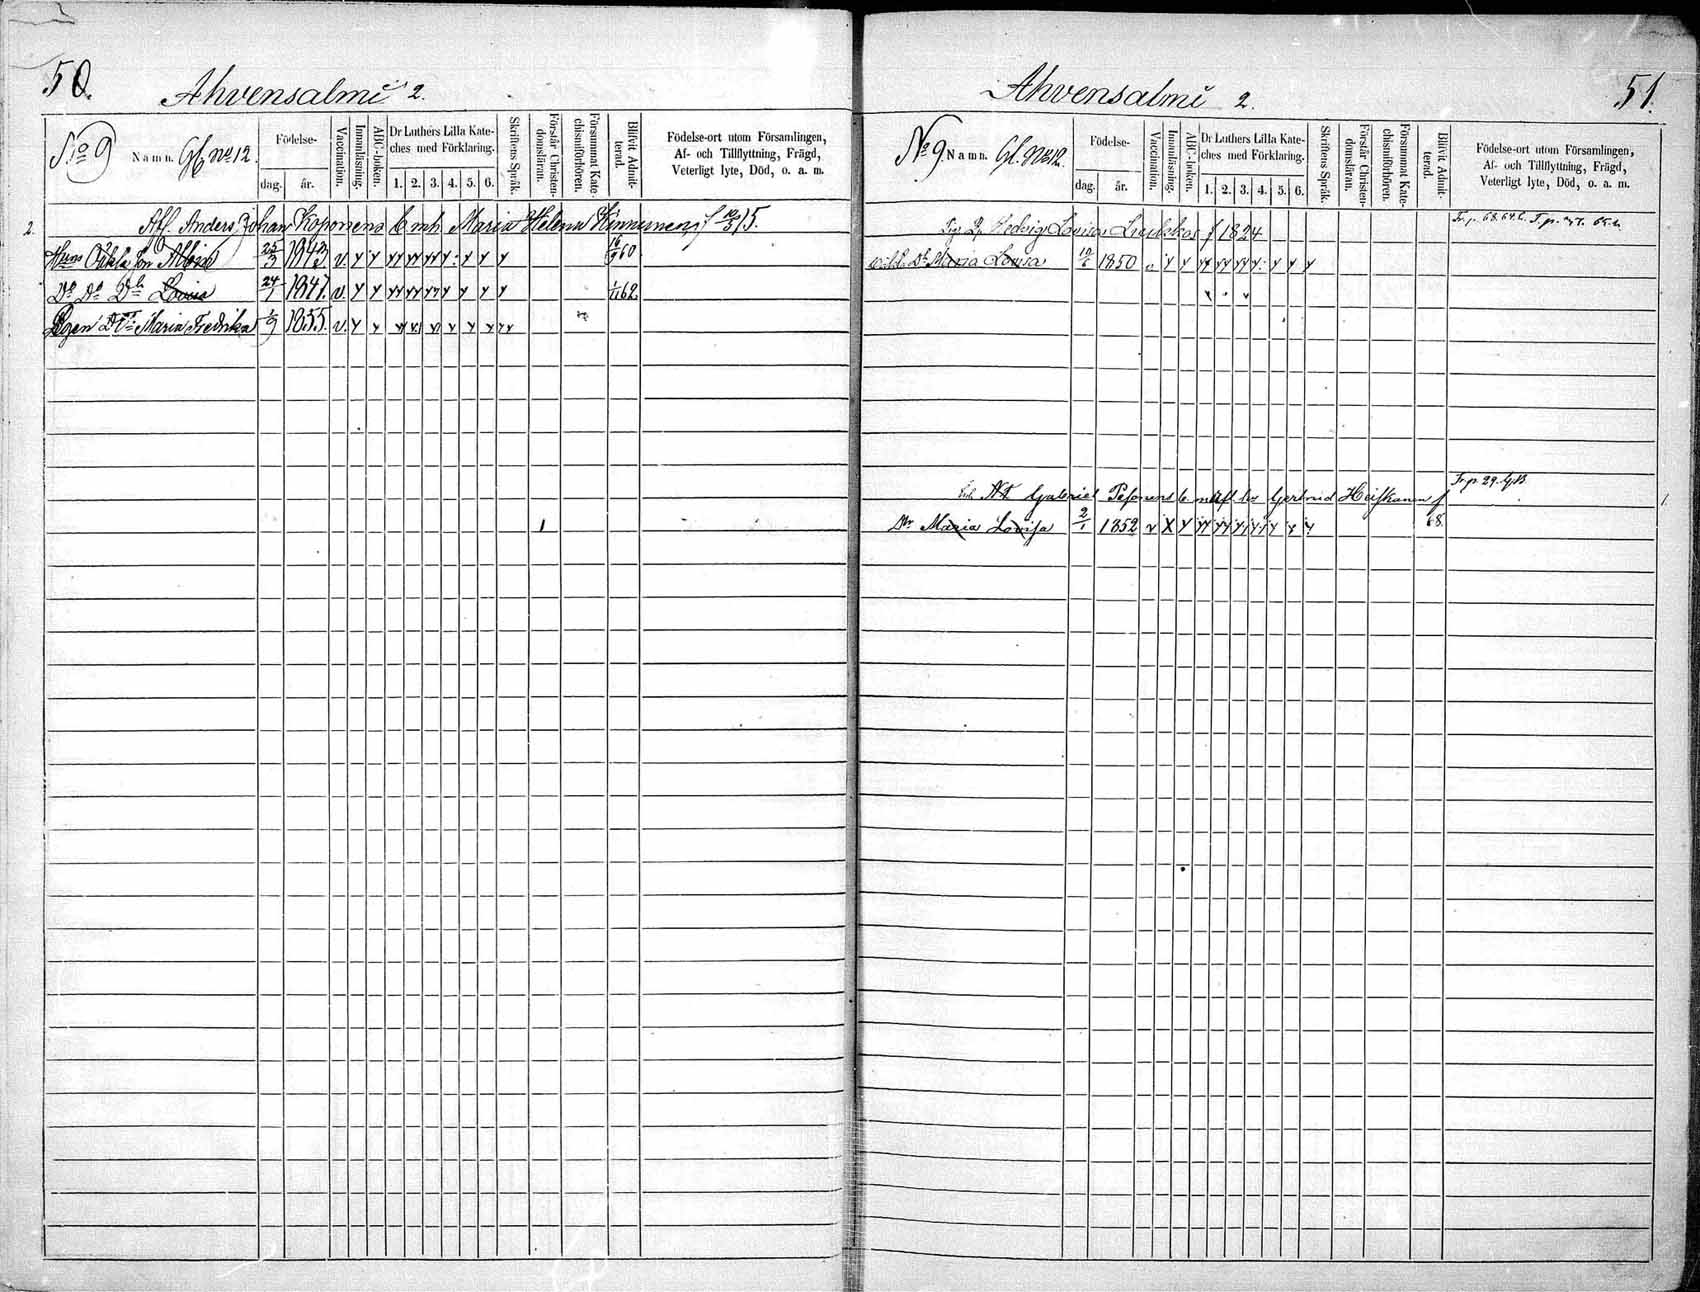 50.
Ahvensalmi 2.
No 9 Namn. Gl. No 12.
Födelse-
dag. år.
Vaccination.
Innanläsning.
ABC-boken.
Dr Luthers Lilla Kate-
ches med Förklaring.
1. 2. 3. 4. 5. 6.
Skriftens Språk.
Förstår Christen-
domsläran.
Försummat Kate-
chismiförhören.
Blifvit Admit-
terad.
Födelse-ort utom Församlingen,
Af- och Tillflyttning, Frägd,
Veterligt lyte, Död, o. a. m.
2. Afl. Anders Johan Koponens Emh. Maria Helena Kinnunen f 10/3 15.
Hens 25/3 1843 v. 60
Do Do Lovisa 24/1 1847 v. 62
Egen Dr Maria Fredrika 1/9 1855. v.
51.
Ahvensalmi 2.
No 9. Namn. Gl. No 12.
Födelse-
dag. år.
Vaccination.
Innanläsning.
ABC-boken.
Dr Luthers Lilla Kate-
ches med Förklaring.
1. 2. 3. 4. 5. 6.
Skriftens Språk.
Förstår Christen-
domsläran.
Försummat Kate-
chismiförhören.
Blifvit Admit-
terad.
Födelse-ort utom Församlingen,
Af- och Tillflyttning, Frägd,
Veterligt lyte, Död, o. a. m.
Hedvig Lovisa f 1824
Dr Maria Lovisa 1850 v
Fr. p. 29.
Gabriel Pesonens Gertrud Heiskanen f 1.
Dr Maria Lovisa 2/1 1852 v 68.